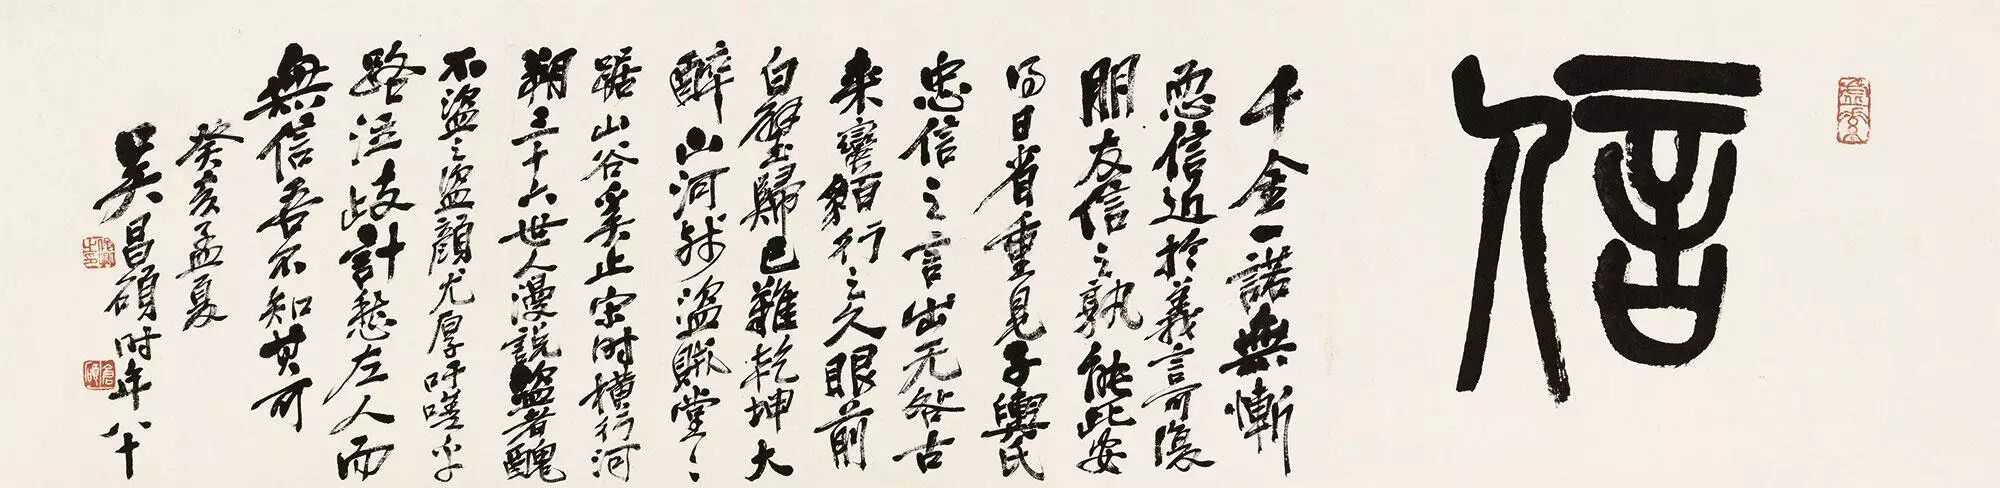 信
千金一諾無慚
恧信近於義言可復
朋友信之孰能比安
得日省重見子輿氏
忠信之言出无咎古
来蠻貊行之久眼前
白璧歸已難乾坤大
醉山河殘盜賊堂〻
踞山谷奚止宋時橫行河
朔三十六世人漫説盜者醜
不盜之盜顏尤厚吁嗟乎
路泣歧計愁左人而
無信吾不知其可
癸亥孟夏
吳昌碩時年八十